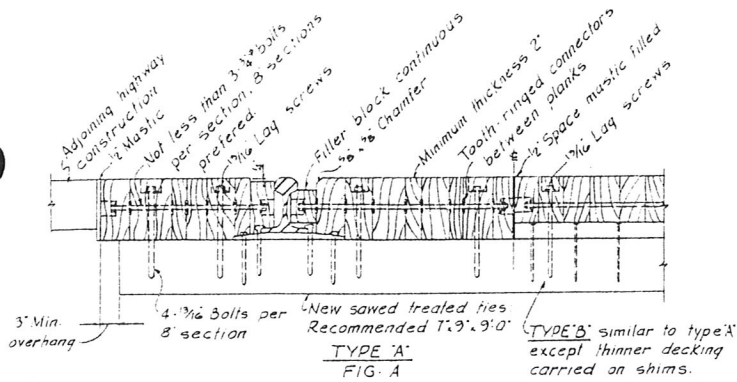 Adjoining highway
construction
½" Mastic
Not less than 3-¾"ø bolts
per section, 8' sections
prefered.
13/16" Lag screws
Filler block continuous
⅝" x ⅝" Chamfer
Minimum thickness 2"
Tooth-ringed connectors
between planks
½" Space mastic filled
13/16" Lag screws
3" Min.
overhang
4-13/16" Bolts per
8' section
New sawed treated ties
Recommended 7"x9"x9'-0"
TYPE "A"
FIG. A
TYPE "B" similar to type "A"
except thinner decking
carried on shims.